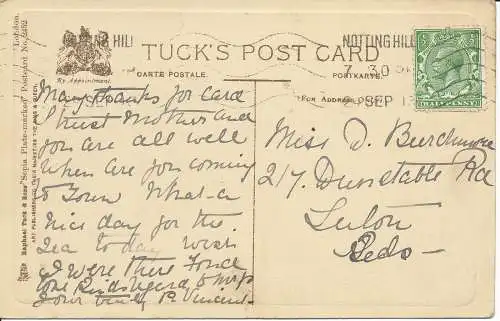 NOTTING HILL
NOTTING HILL
7. 30
SEP 1
HALFPENNY
By Appointment.
TUCK'S POST CARD
CARTE POSTALE.
POSTKARTE.
(FOR ADDRESS
Raphael Tuck & Sons' "Sepia Plate-marked" Postcard No.
London.
ART PUBLISHERS TO THEIR MAJESTIES THE KING & QUEEN.
Many thanks for card
I trust Mother and
you are all well
When are you coming
to Town What-a
nice day for the
Sea to day wish
I were there Fond
love Kind regard to
Your truly P. Vincent
Miss D. Burchmore
217 Dunstable Rd
Luton
Beds